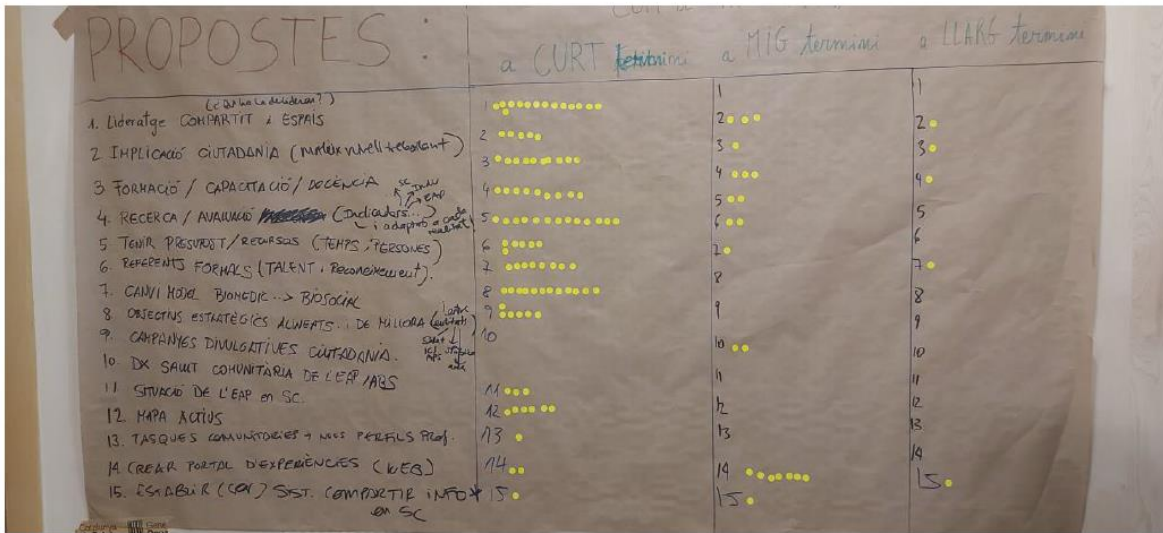 PROPOSTES :
a CURT termini
a MIG termini
a LLARG termini
1. Lideratge COMPARTIT i ESPAIS
2 IMPLICACIÓ CIUTADANIA (mateix nivell treballant)
3 FORMACIÓ / CAPACITACIÓ / DOCÈNCIA
4. RECERCA / AVALUACIÓ (Indicadors...)
i adaptat a cada realitat
5 TENIR PRESUPOST / RECURSOS (TEMPS, PERSONES)
6. REFERENTS FORMALS (TALENT i Reconeixement).
7. CANVI MODEL BIOMEDIC --> BIOSOCIAL
8 OBJECTIUS ESTRATÈGICS ALINEATS... i DE MILLORA
9. CAMPANYES DIVULGATIVES CIUTADANIA.
10 DX SALUT COMUNITÀRIA DE L'EAP / ABS
11 SITUACIÓ DE L'EAP en SC.
12. MAPA ACTIUS
13. TASQUES COMUNITÀRIES → NOUS PERFILS Prof.
14 CREAR PORTAL D'EXPERIÈNCIES (WEB)
15. ESTABLIR SIST. COMPARTIR INFO *
en SC
1
2
3
4
5
6
7
8
9
10
11
12
13
14
15
1
2
3
4
5
6
2
8
9
10
11
12
13
14
15
1
2
3
4
5
6
7
8
9
10
11
12
13
14
15